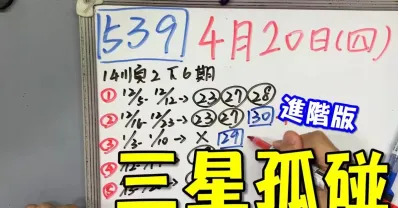 539 4月20日(四)
14順2下6期
① 12/5-12/12→ 23 27 28
② 12/16-12/23→ 23 27 30
進階版
③ 1/3-1/10→ × 29
三星孤碰